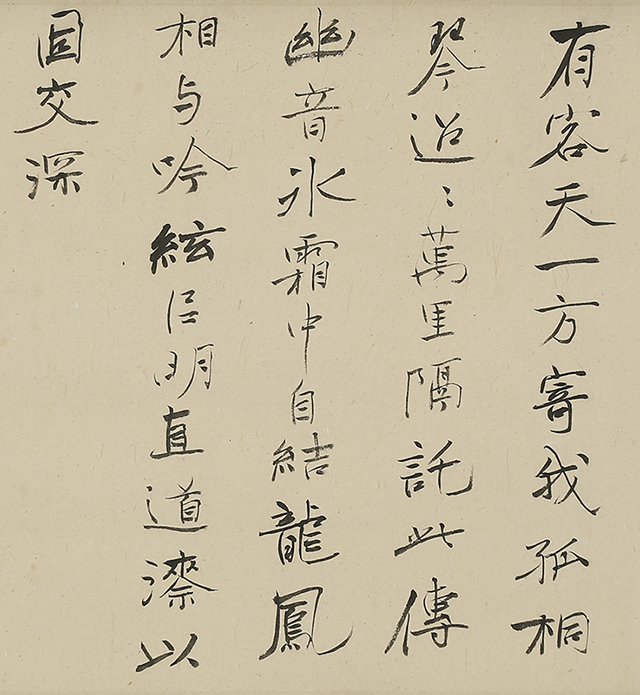 有客天一方寄我孤桐
琴迢〻萬里隔託此傳
幽音氷霜中自結龍鳳
相与吟絃㠯明直道漆以
固交深